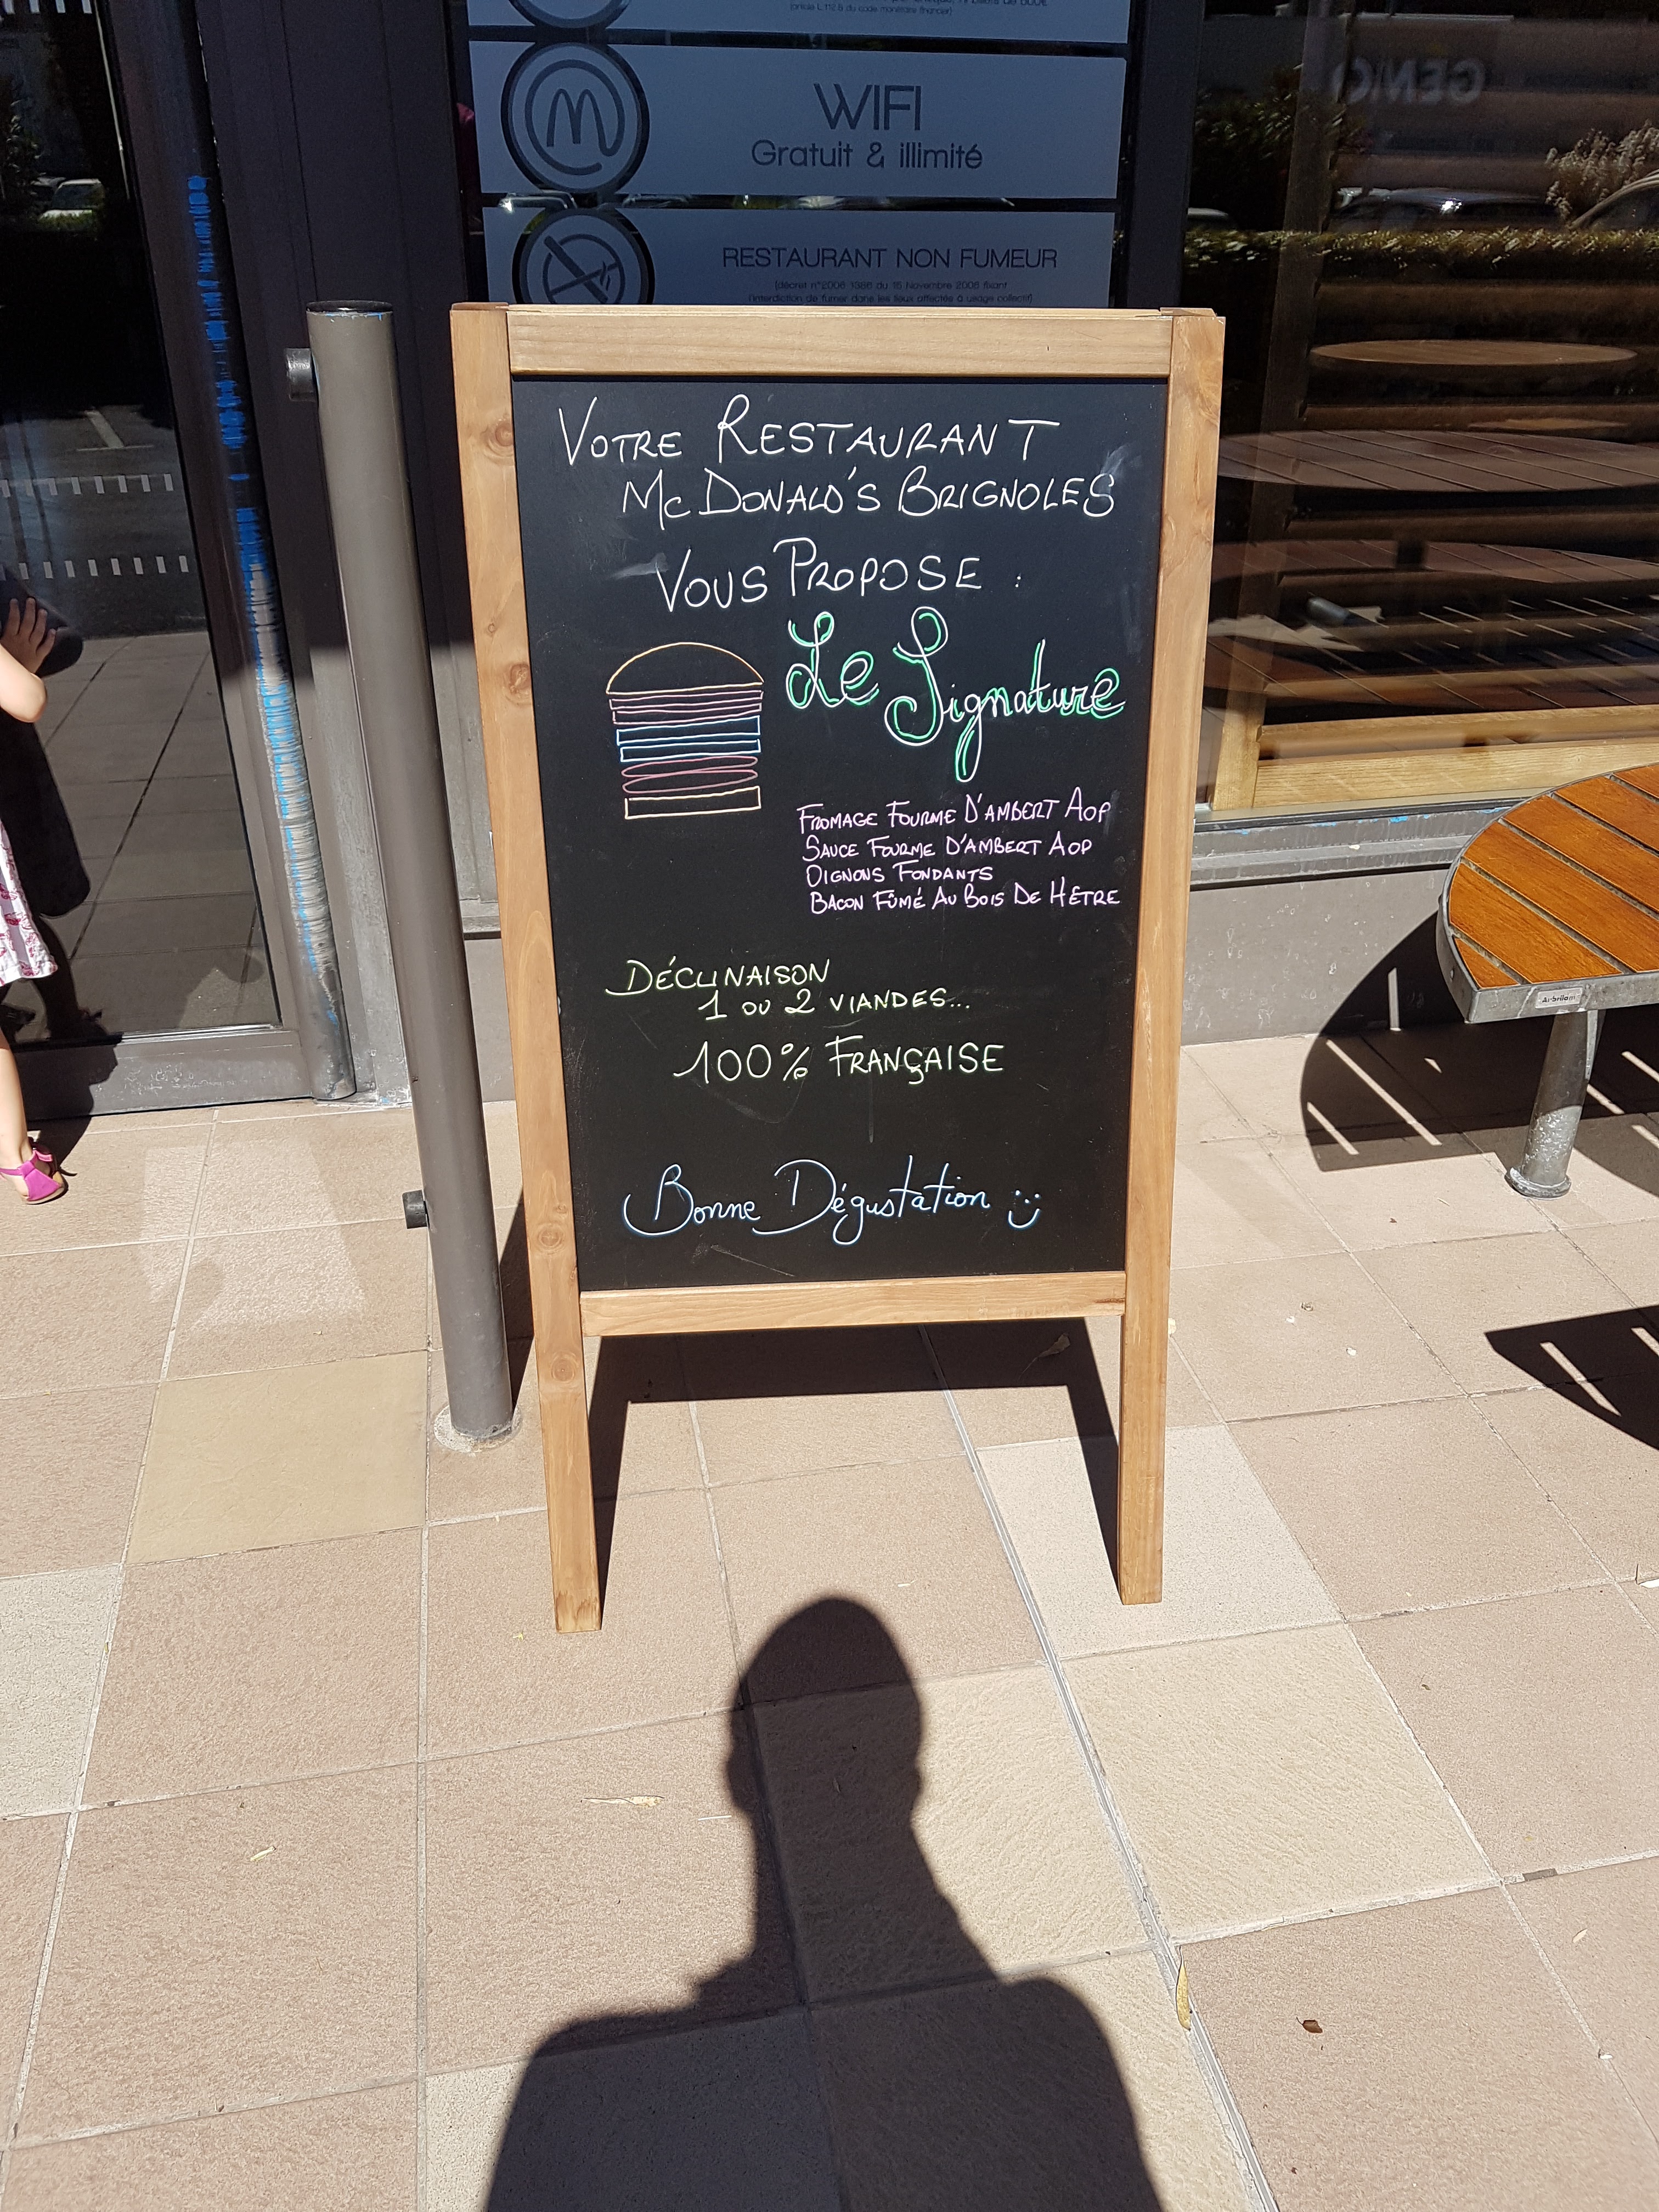 (article L.112.8 du code monétaire financier)
WIFI
Gratuit & illimité
RESTAURANT NON FUMEUR
(décret n°2006 1386 du 15 Novembre 2006 fixant
l'interdiction de fumer dans les lieux affectés à usage collectif)
VOTRE RESTAURANT
McDONALD'S BRIGNOLES
VOUS PROPOSE :
Le Signature
FROMAGE FOURME D'AMBERT AOP
SAUCE FOURME D'AMBERT AOP
OIGNONS FONDANTS
BACON FÛMÉ AU BOIS DE HÊTRE
DÉCLINAISON
1 OU 2 VIANDES...
100% FRANÇAISE
Bonne Dégustation